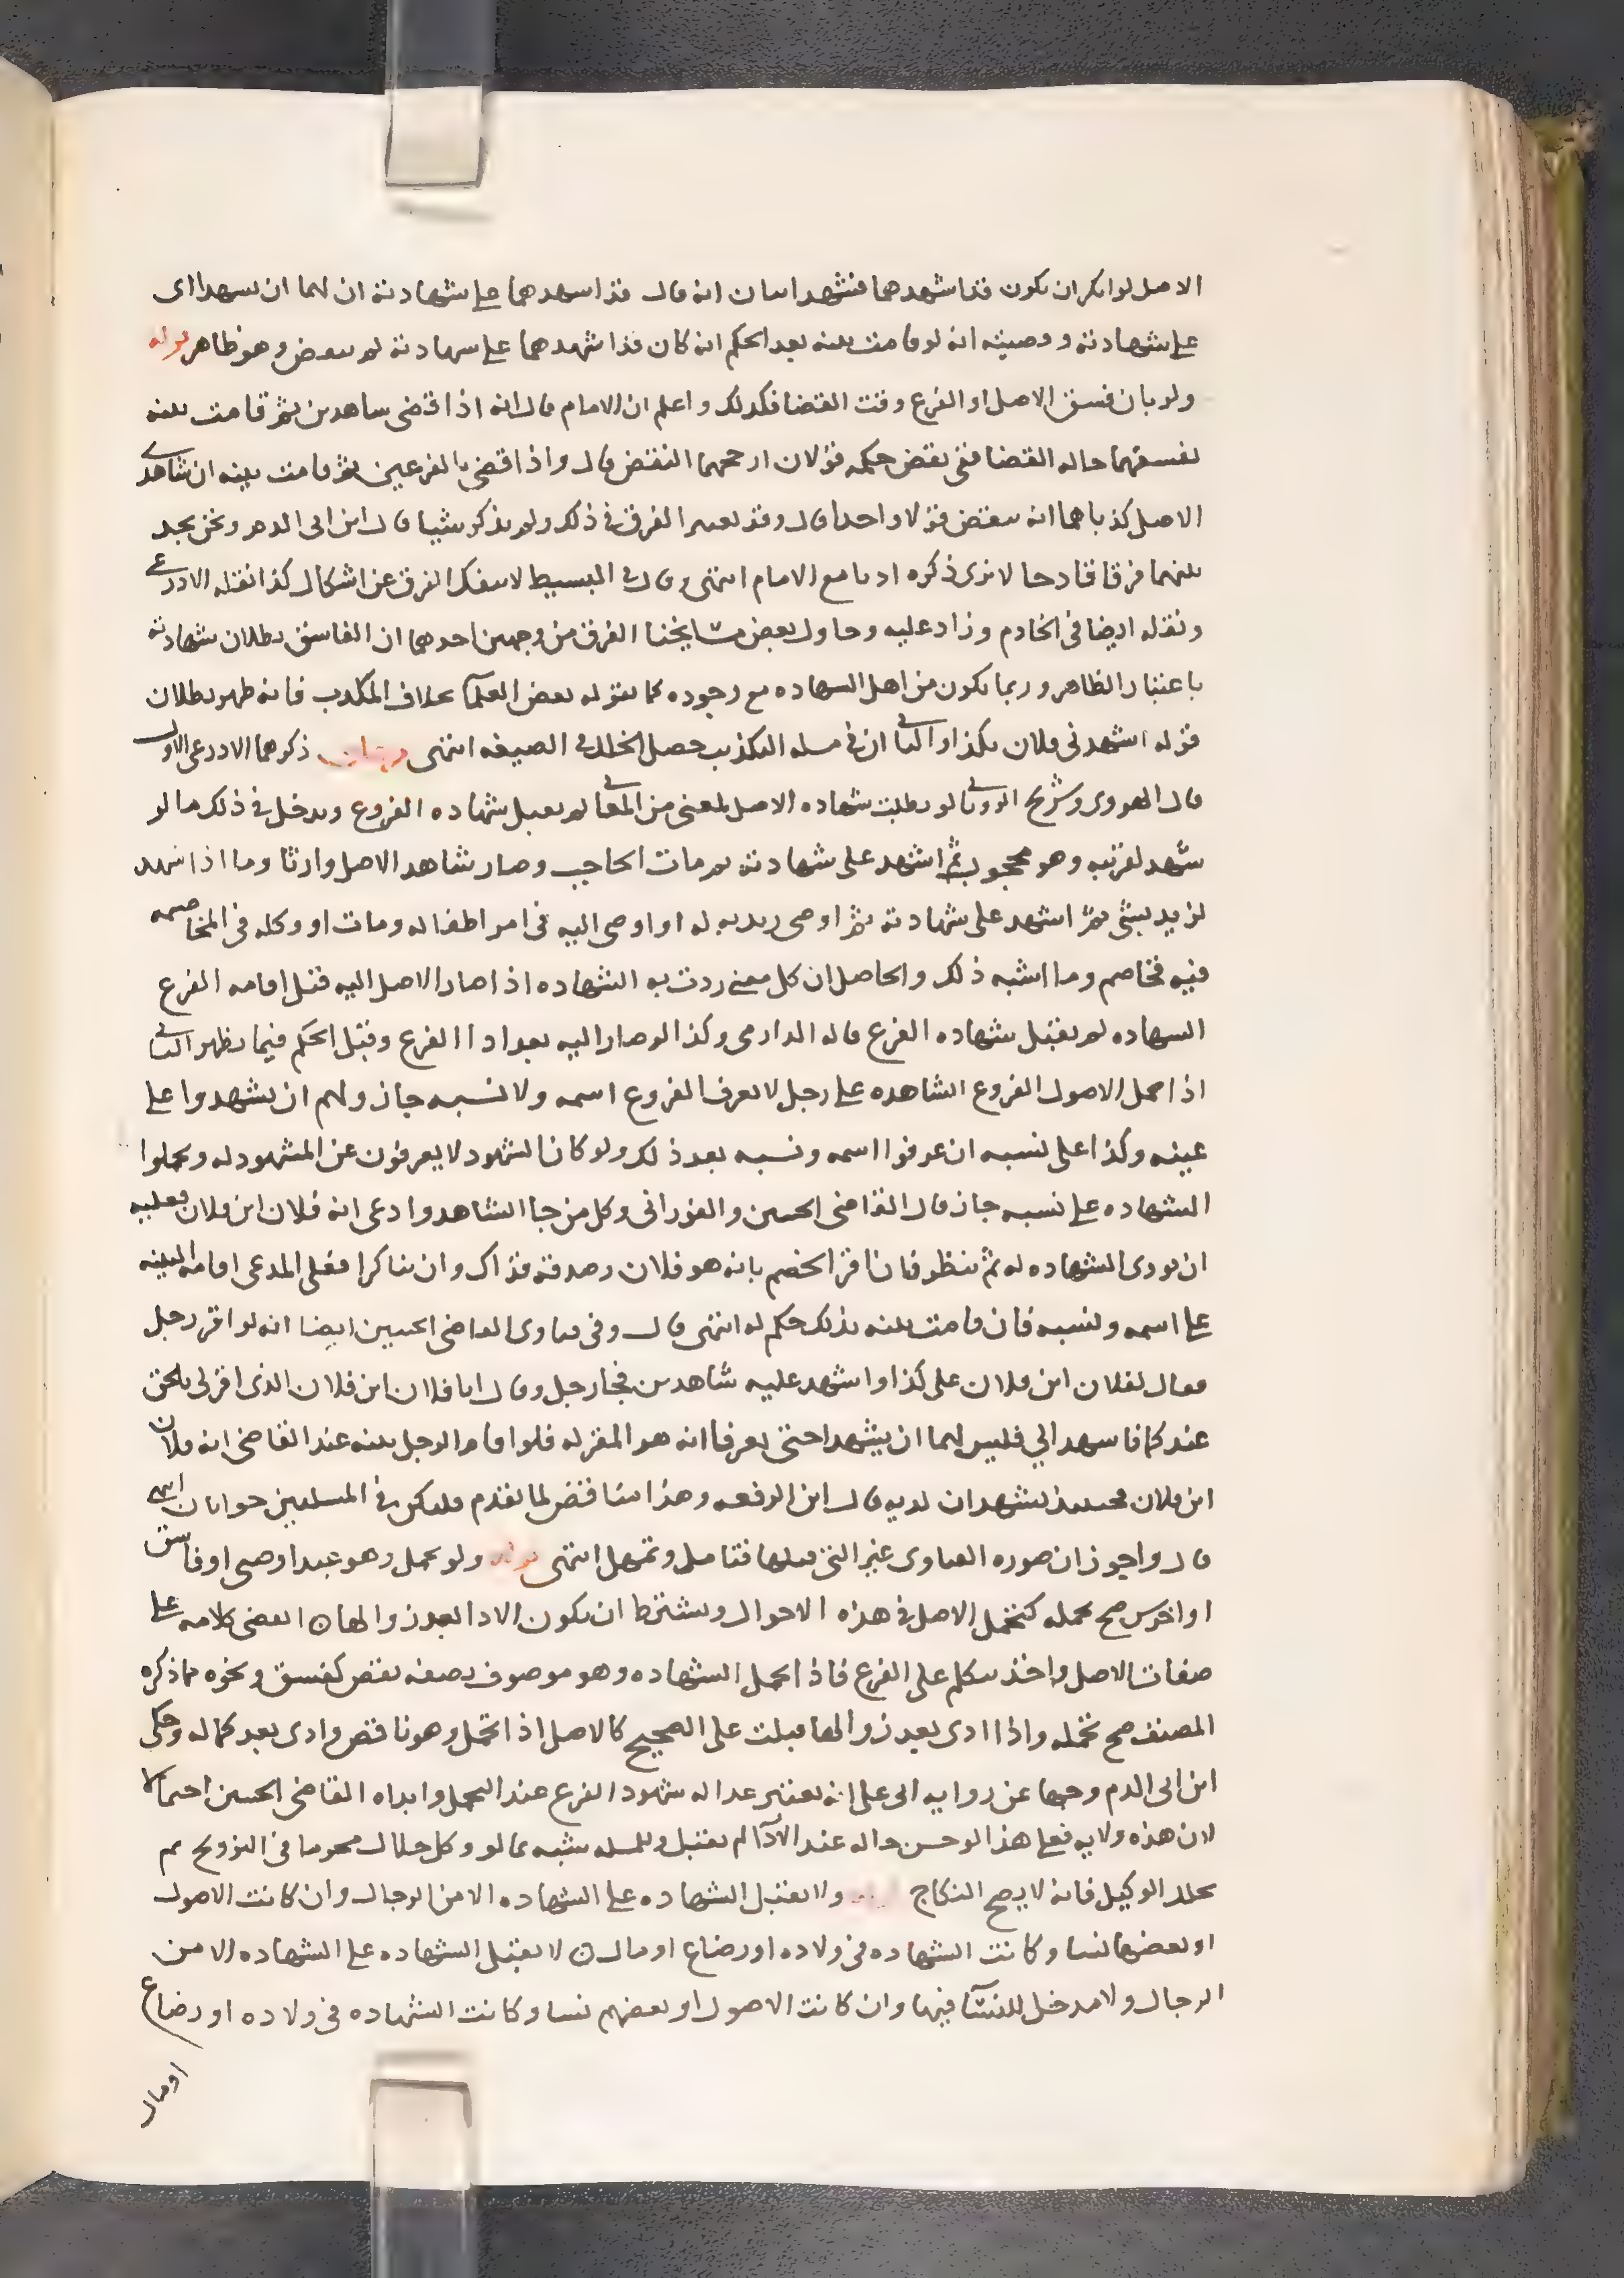 الاصل لو انكر ان يكون قد اشهدهما فشهد اثنان انه قال قد اشهدهما على شهادته ان لهما ان يشهدا اي
على شهادته وقضيته انه لو قامت بينه بعد الحكم انه كان قد اشهدهما على شهادته لم ينقض وهو ظاهر قوله
ولو بان فسق الاصل او الفرع وقت القضا فكذلك واعلم ان الامام قال انه اذا قضى بشاهدين ثم قامت بينه
بفسقهما حاله القضا ففي نقض حكمه قولان ارجحهما النقض قال واذا قضى بالفرعين ثم قامت بينه ان شاهدي
الاصل كذباهما انه ينقض قولا واحدا قال وقد يعسر الفرق في ذلك ولم يذكر شيا قال ابن ابي الدم ونحن نجد
بينهما فرقا قادحا لا نرى ذكره ادبا مع الامام انتهى وقال في البسيط لا ينفك الفرق عن اشكال كذا نقله الاذرعي
ونقله ايضا في الخادم وزاد عليه وحاول بعض مشايخنا الفرق من وجهين احدهما ان الفاسق بطلان شهادته
باعتبار الظاهر وربما يكون من اهل الشهاده مع وجوده كما يقوله بعض العلما بخلاف المكذب فانه ظهر بطلان
قوله اشهدني فلان بكذا والثاني ان في مسله التكذيب حصل الخلل في الصيغه انتهى ذكرهما الاذرعي الاول
قال الهروي وشريح الروياني لو بطلت شهاده الاصل لمعنى من المعاني لم يقبل شهاده الفروع ويدخل في ذلك ما لو
شهد لقريبه وهو محجوب ثم اشهد على شهادته ثم مات الحاجب وصار شاهد الاصل وارثا وما اذا شهد
لزيد بشي ثم اشهد على شهادته ثم اوصى زيد به له او اوصى اليه في امر اطفاله ومات او وكله في المخاصمه
فيه فخاصم وما اشبه ذلك والحاصل ان كل معنى ردت به الشهاده اذا صار الاصل اليه قبل اقامه الفرع
الشهاده لم يقبل شهاده الفرع قاله الدارمي وكذا لو صار اليه بعد ادا الفرع وقبل الحكم فيما يظهر الثاني
اذا حمل الاصول الفروع الشاهده على رجل لا يعرف الفروع اسمه ولا نسبه جاز ولهم ان يشهدوا على
عينه وكذا على نسبه ان عرفوا اسمه ونسبه بعد ذلك ولو كان الشهود لا يعرفون عين المشهود له وتحملوا
الشهاده على نسبه جاز قال القاضي الحسين والفوراني وكل من جا الشاهد وادعى انه فلان ابن فلان فعليه
ان يودي الشهاده له ثم ينظر فان اقر الخصم بانه هو فلان وصدقه فذاك وان تناكرا فعلى المدعي اقامه البينه
على اسمه ونسبه فان قامت بينه بذلك حكم له انتهى قال وفي فتاوى القاضي الحسين ايضا انه لو اقر رجل
فقال لفلان ابن فلان على كذا واشهد عليه شاهدين فجا رجل وقال انا فلان ابن فلان الذي اقر لي بالحق
عندكما فاشهدا لي فليس لهما ان يشهدا حتى يعرفا انه هو المقر له فلو اقام الرجل بينه عند القاضي انه فلان
ابن فلان فحينئذ يشهدان لديه قال ابن الرفعه وهذا يناقض لما تقدم فليكن في المسلتين جوابان انتهى
قال واجوز ان صوره الفتاوى غير التي قبلها فتامل وتمهل انتهى قوله ولو تحمل وهو عبد او صبي او فاسق
او اخرس صح تحمله كتحمل الاصل في هذه الاحوال ويشترط ان يكون الادا بعد زوالها ن انقضى كلامه على
صفات الاصل واخذ يتكلم على الفرع فاذا تحمل الشهاده وهو موصوف بصفه نقص كفسق ونحوه مما ذكره
المصنف صح تحمله واذا ادى بعد زوالها قبلت على الصحيح كالاصل اذا تحمل وهو ناقص وادى بعد كماله وحكى
ابن ابي الدم وجها عن روايه ابي علي انه يعتبر عداله شهود الفرع عند التحمل وابداه القاضي الحسين احتمالا
لان هذه ولايه فعلى هذا لو حسن حاله عند الادا لم يقبل وللمسله شبه بما لو وكل حلال محرما في التزويج ثم
تحلل الوكيل فانه لا يصح النكاح ولا يقبل الشهاده على الشهاده الا من الرجال وان كانت الاصول
او بعضها نسا وكانت الشهاده في ولاده او رضاع او مال ن لا يقبل الشهاده على الشهاده الا من
الرجال ولا مدخل للنسا فيها وان كانت الاصول او بعضهم نسا وكانت الشهاده في ولاده او رضاع
او مال